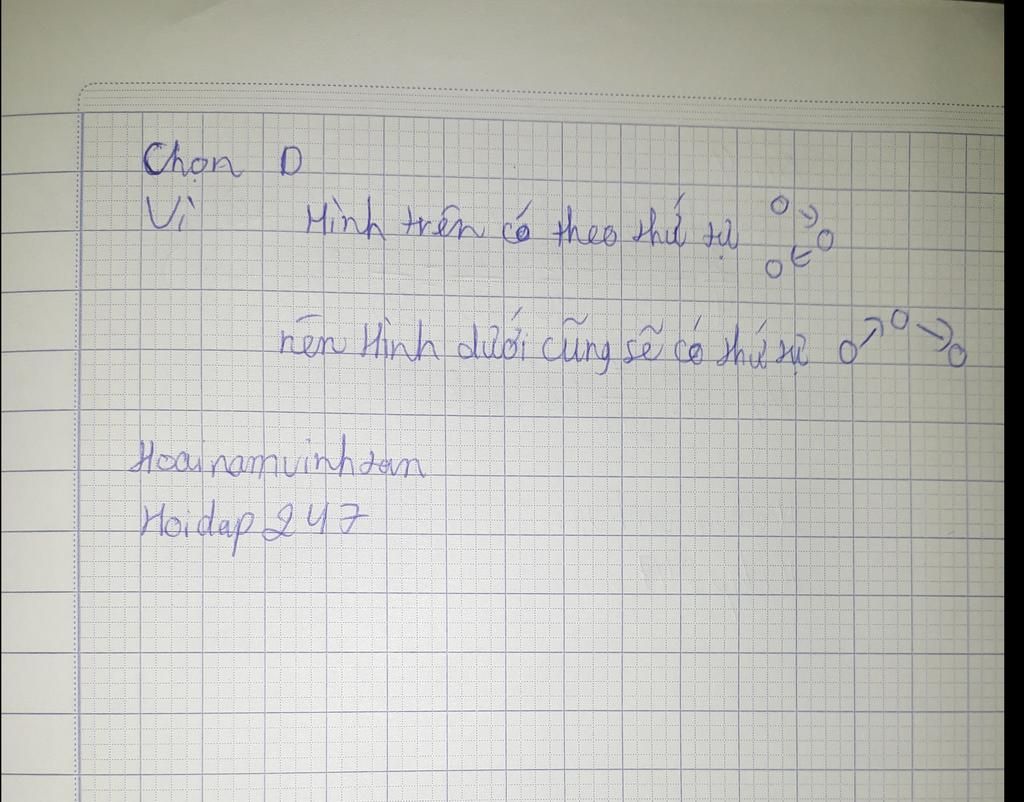 Chọn D
Vì Hình trên có theo thứ tự
nên Hình dưới cũng sẽ có thứ tự
Hoainamvinhtan
Hoidap247